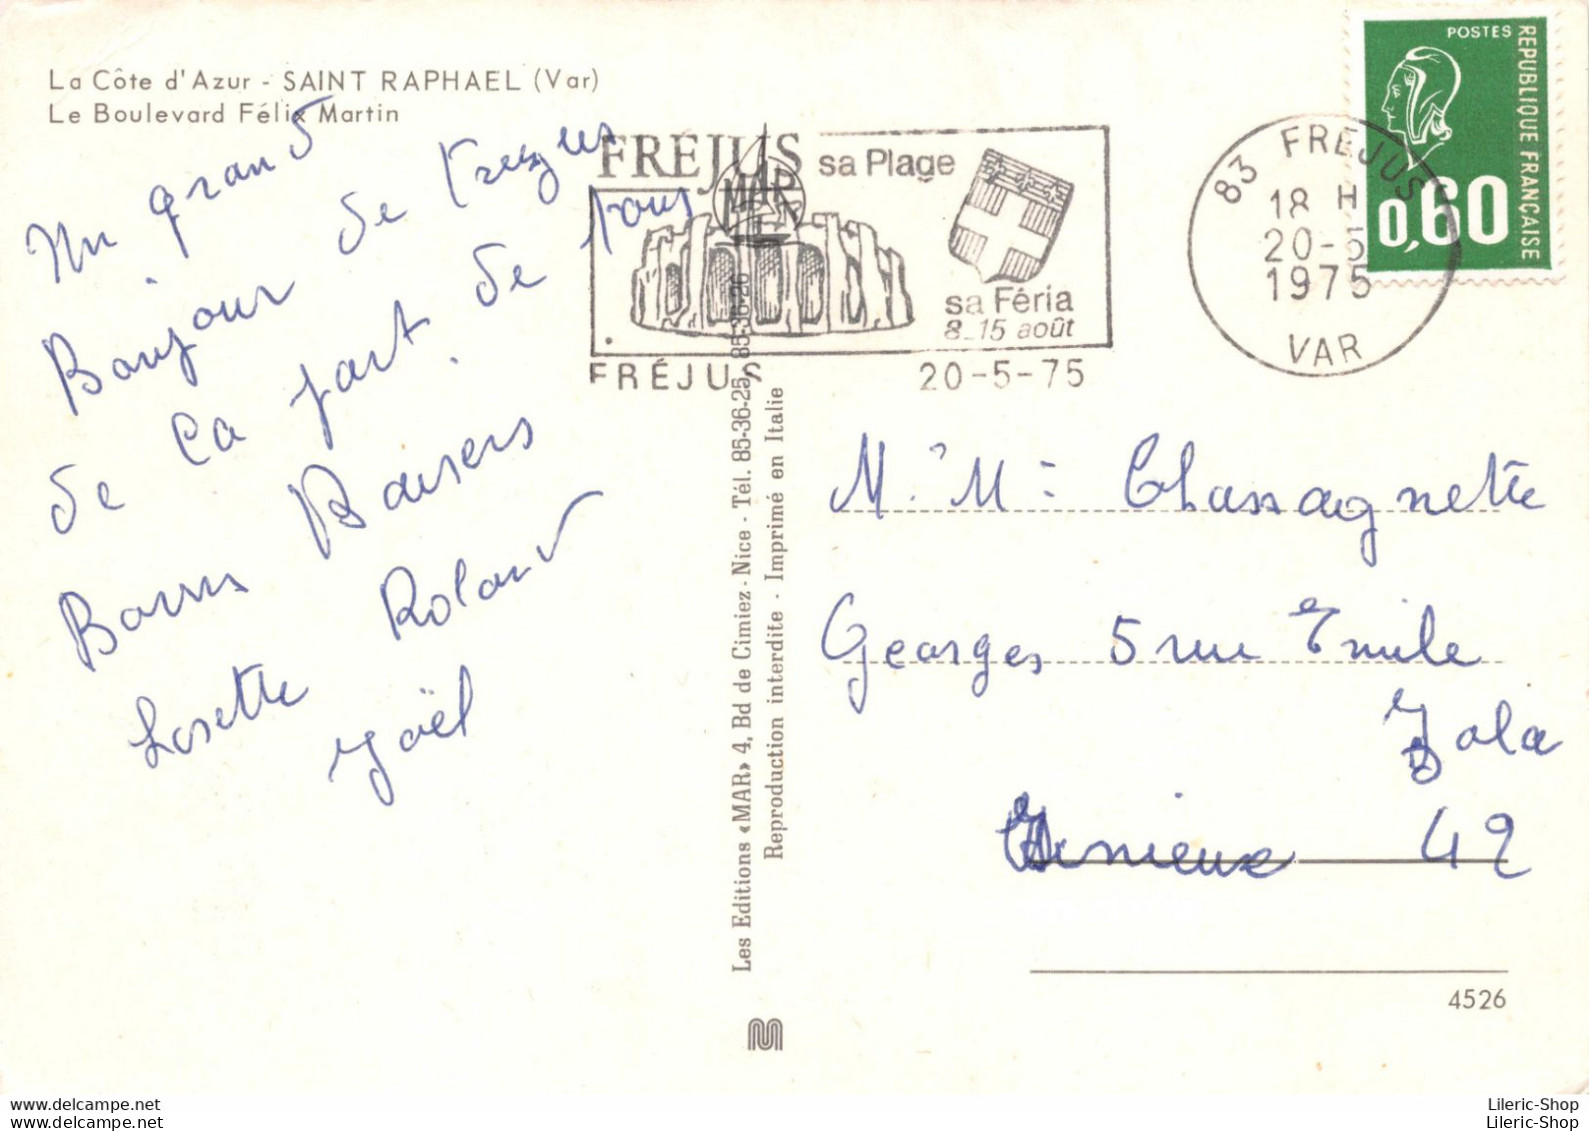 La Côte d'Azur - SAINT RAPHAEL (Var)
Le Boulevard Félix Martin
Un grand
Bonjour de Frezus
de la part de tous
Bonns Baisers
Losette Roland
Joël
FRÉJUS sa Plage
MAR
sa Féria
8_15 août
FRÉJUS 20-5-75
83 FREJUS
18 H
20-5
1975
VAR
POSTES
REPUBLIQUE FRANÇAISE
0,60
Les Editions «MAR» 4, Bd de Cimiez - Nice - Tél. 85-36-25 85-36-26
Reproduction interdite - Imprimé en Italie
M. M. Chassagnette
Georges 5 rue Emile
Zola
42
4526
Lileric-Shop
www.delcampe.net
Lileric-Shop
www.delcampe.net